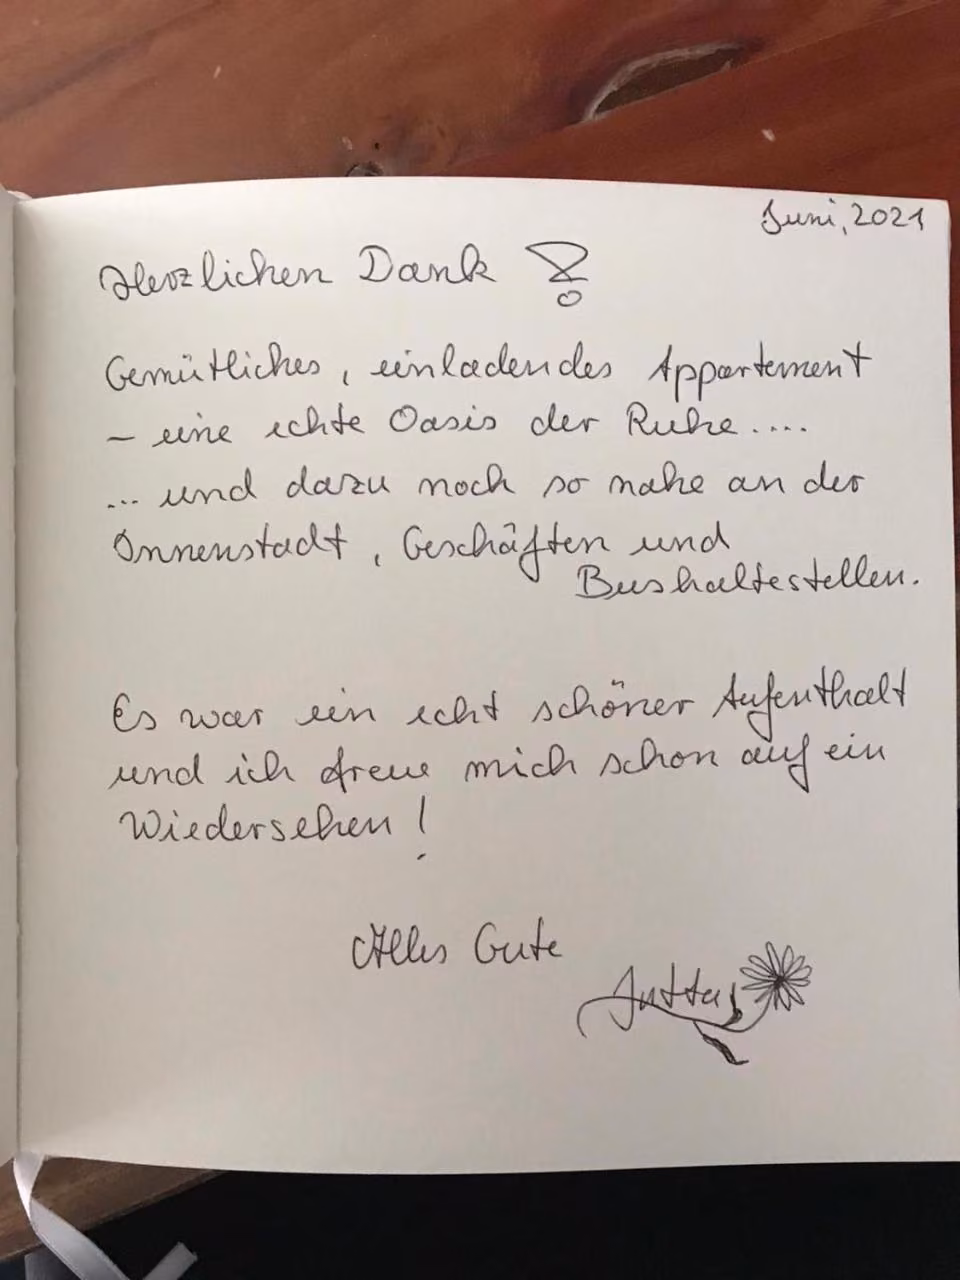 Juni, 2021
Herzlichen Dank !
Gemütliches, einladendes Appartement
– eine echte Oasis der Ruhe....
... und dazu noch so nahe an der
Innenstadt, Geschäften und
Bushaltestellen.
Es war ein echt schöner Aufenthalt
und ich freue mich schon auf ein
Wiedersehen!
Alles Gute
Jutta